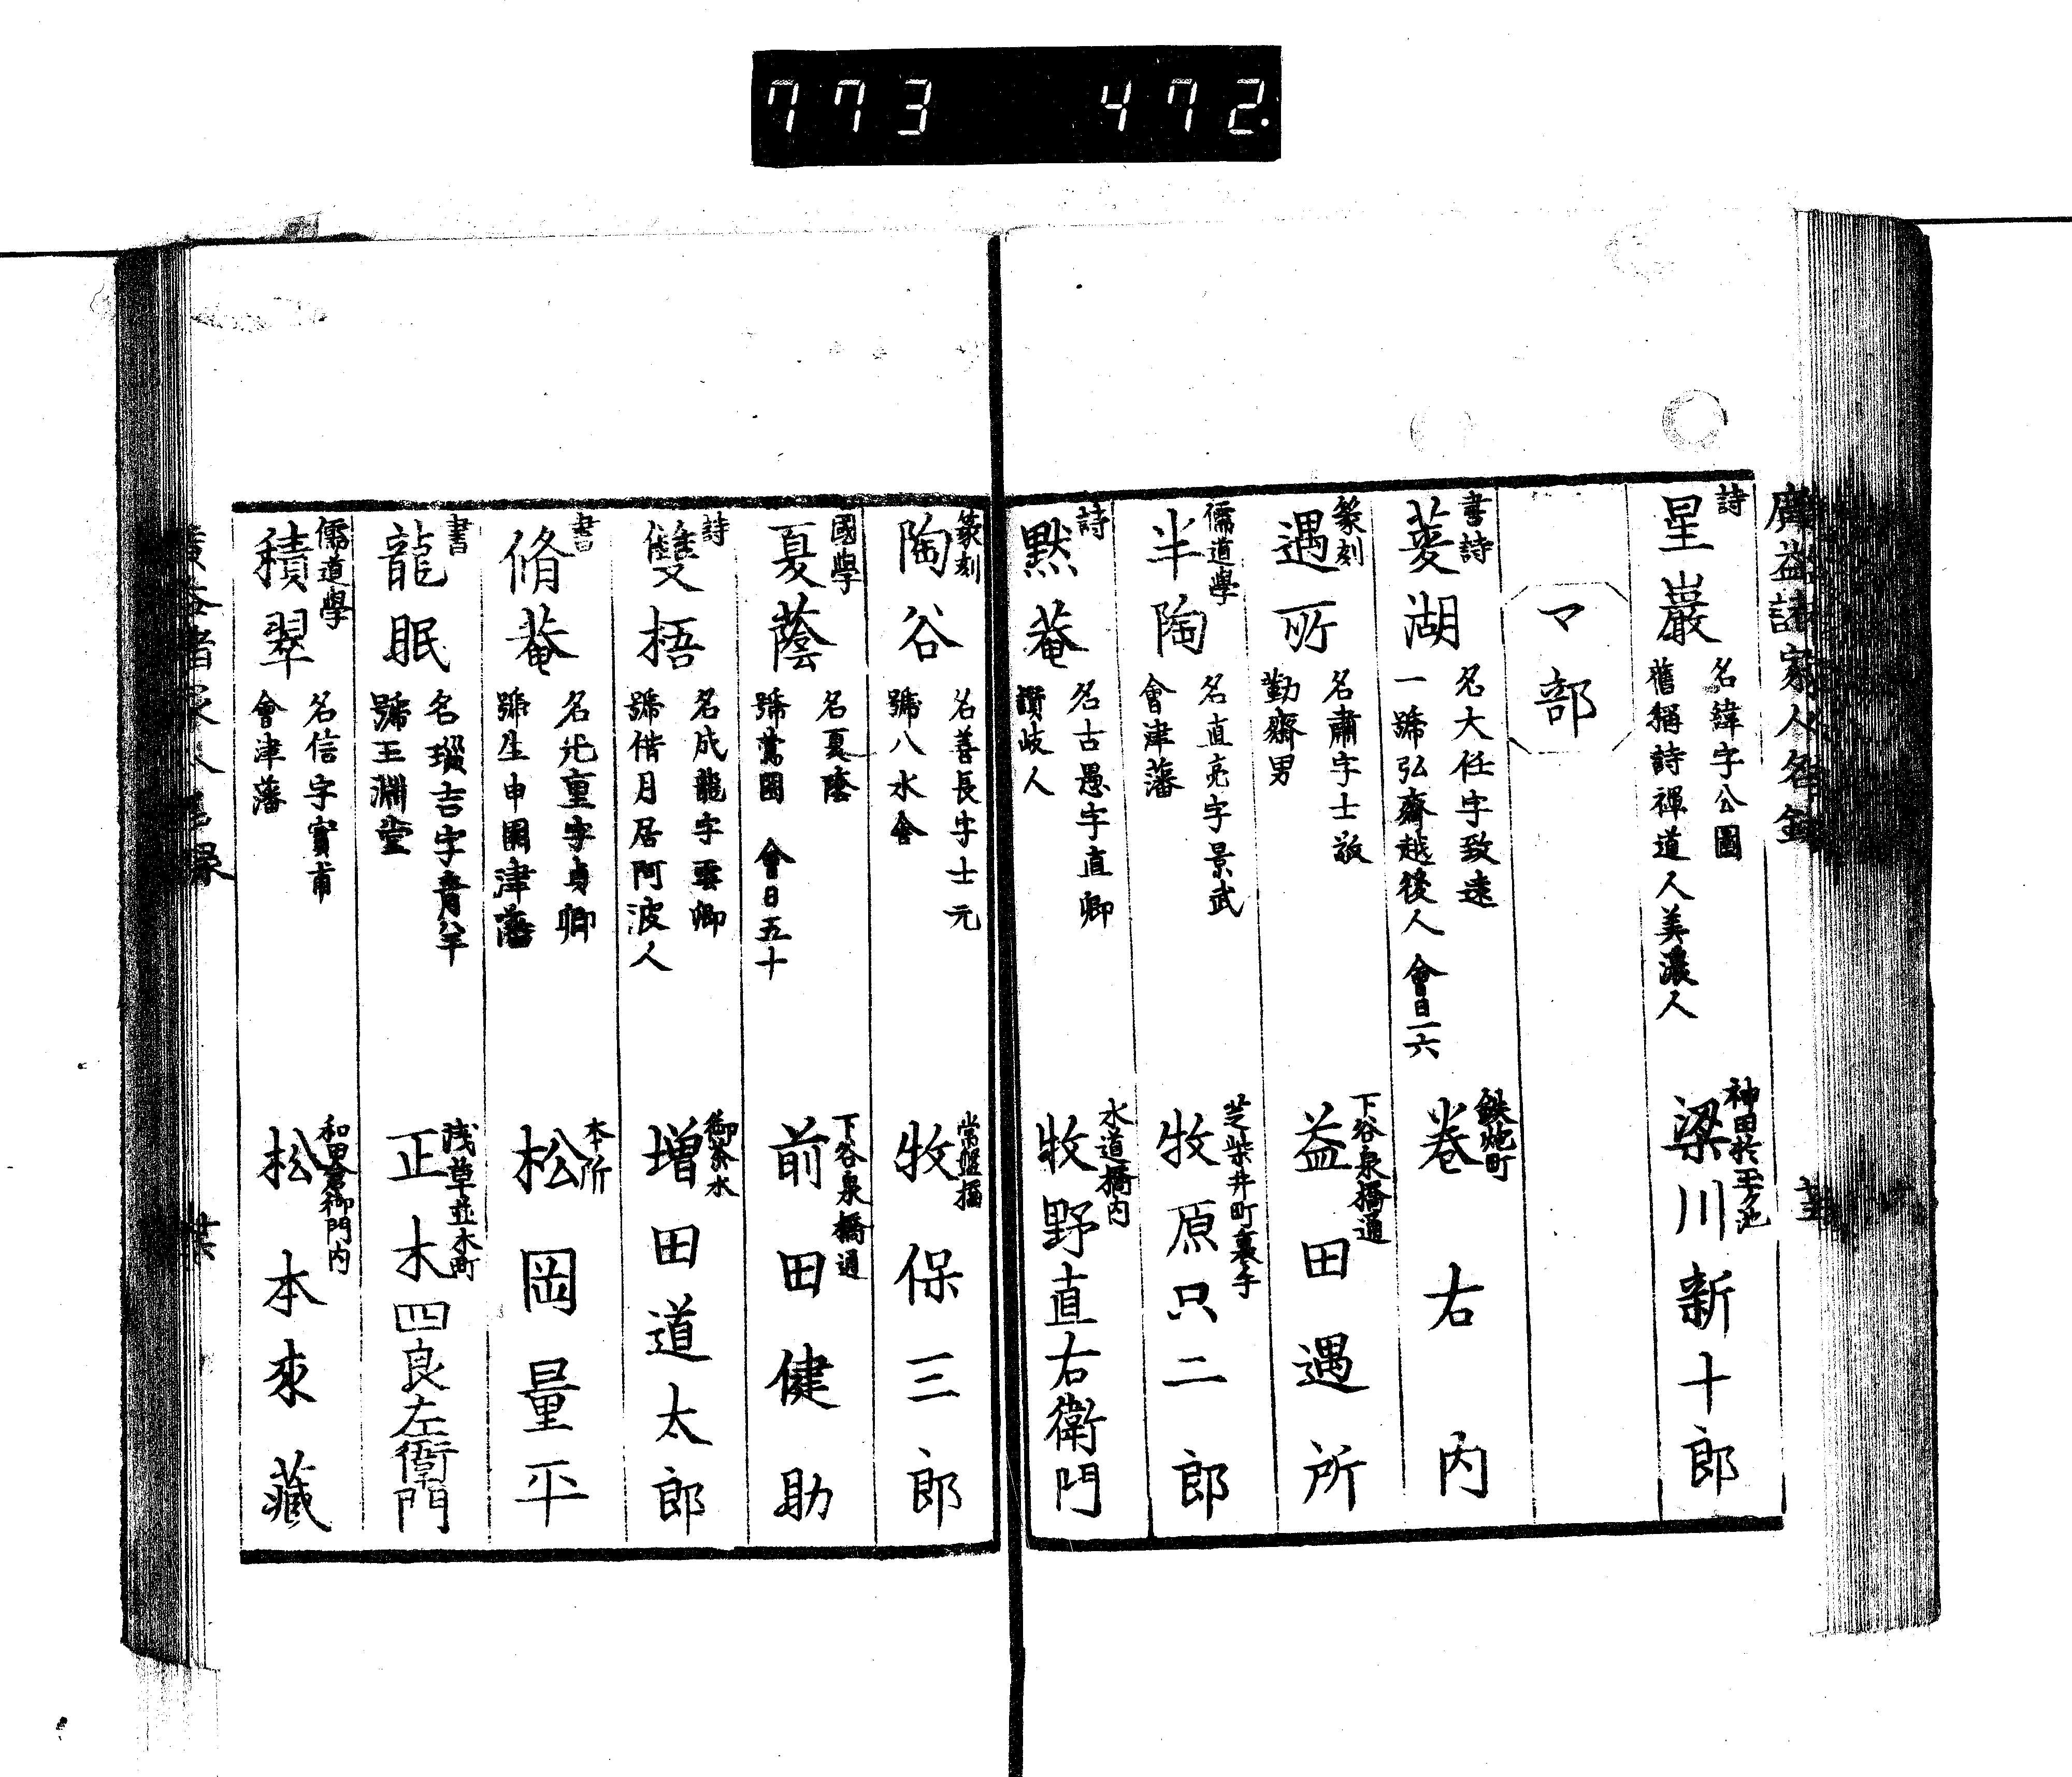 773 472.
廣益諸家人名録
詩
星巖
名緯字公圖
舊稱詩禪道人美濃人
神田於玉ケ池
梁川新十郎
マ部
書詩
菱湖
名大任字致遠
一號弘齋越後人 會日一六
鉄炮町
巻右内
篆刻
遇所
名肅字士敬
勤齋男
下谷泉橋通
益田遇所
儒道學
半陶
名直亮字景武
會津藩
芝柴井町裏手
牧原只二郎
詩
黙菴
名古愚字直卿
讃岐人
水道橋内
牧野直右衛門
篆刻
陶谷
名善長字士元
號八水舎
常盤橋
牧保三郎
國學
夏蔭
名夏蔭
號鶯園 會日五十
下谷泉橋通
前田健助
詩
雙梧
名成龍字雲卿
號偕月居阿波人
御茶水
増田道太郎
書
脩菴
名光重字貞卿
號生申園津藩
本所
松岡量平
書
龍眠
名瑶吉字
號玉淵堂
浅草並木町
正木四良左衛門
儒道學
積翠
名信字實甫
會津藩
和田倉御門内
松本來藏
廣益諸家人名録